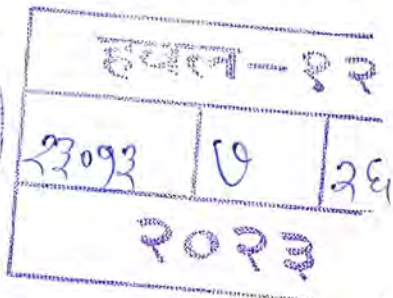 हवल - १२
२३०१३ ७ २६
२०२३